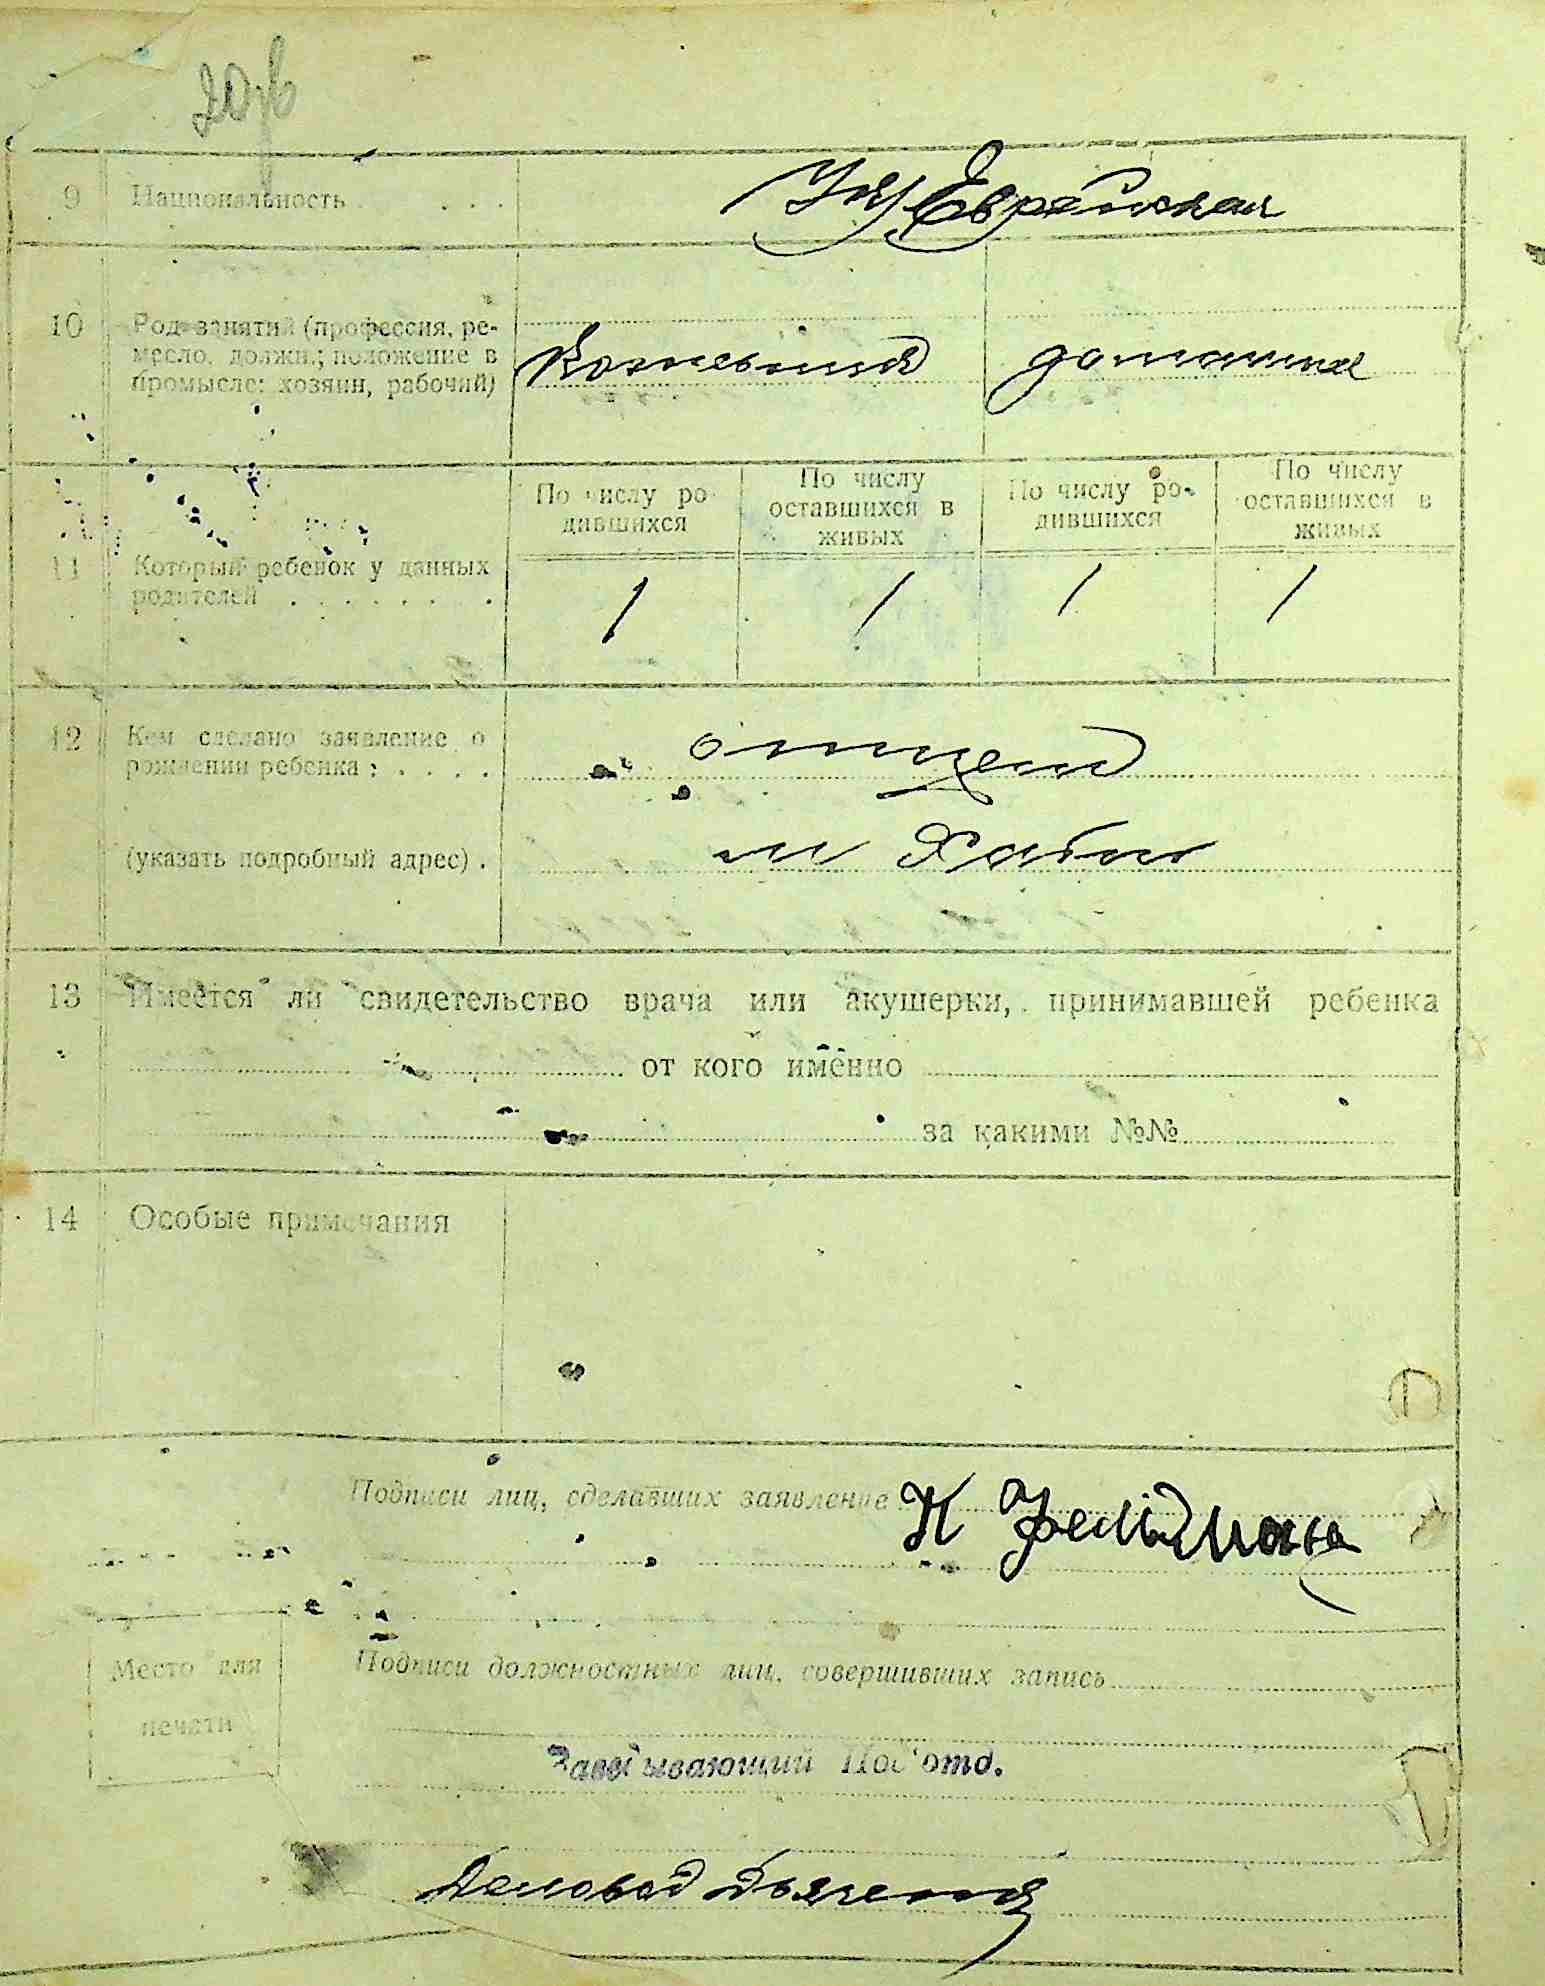 9 Национальность . . . . Укр Еврейская
10 Род занятий (профессия, ре-
месло, должн.; положение в
промысле: хозяин, рабочий)
домашнее
По числу ро-
дившихся
По числу
оставшихся в
живых
По числу ро-
дившихся
По числу
оставшихся в
живых
11 Который ребенок у данных
родителей . . . . . . . .
1 1 1 1
12 Кем сделано заявление о
рождении ребенка: . . . . отцем
(указать подробный адрес) . м Хабно
13 Имеется ли свидетельство врача или акушерки, принимавшей ребенка
от кого именно
за какими №№
14 Особые примечания
Подписи лиц, сделавших заявление К Фельдман
Место для
печати
Подписи должностных лиц, совершивших запись
Заведывающий Под'отд.
Деловод